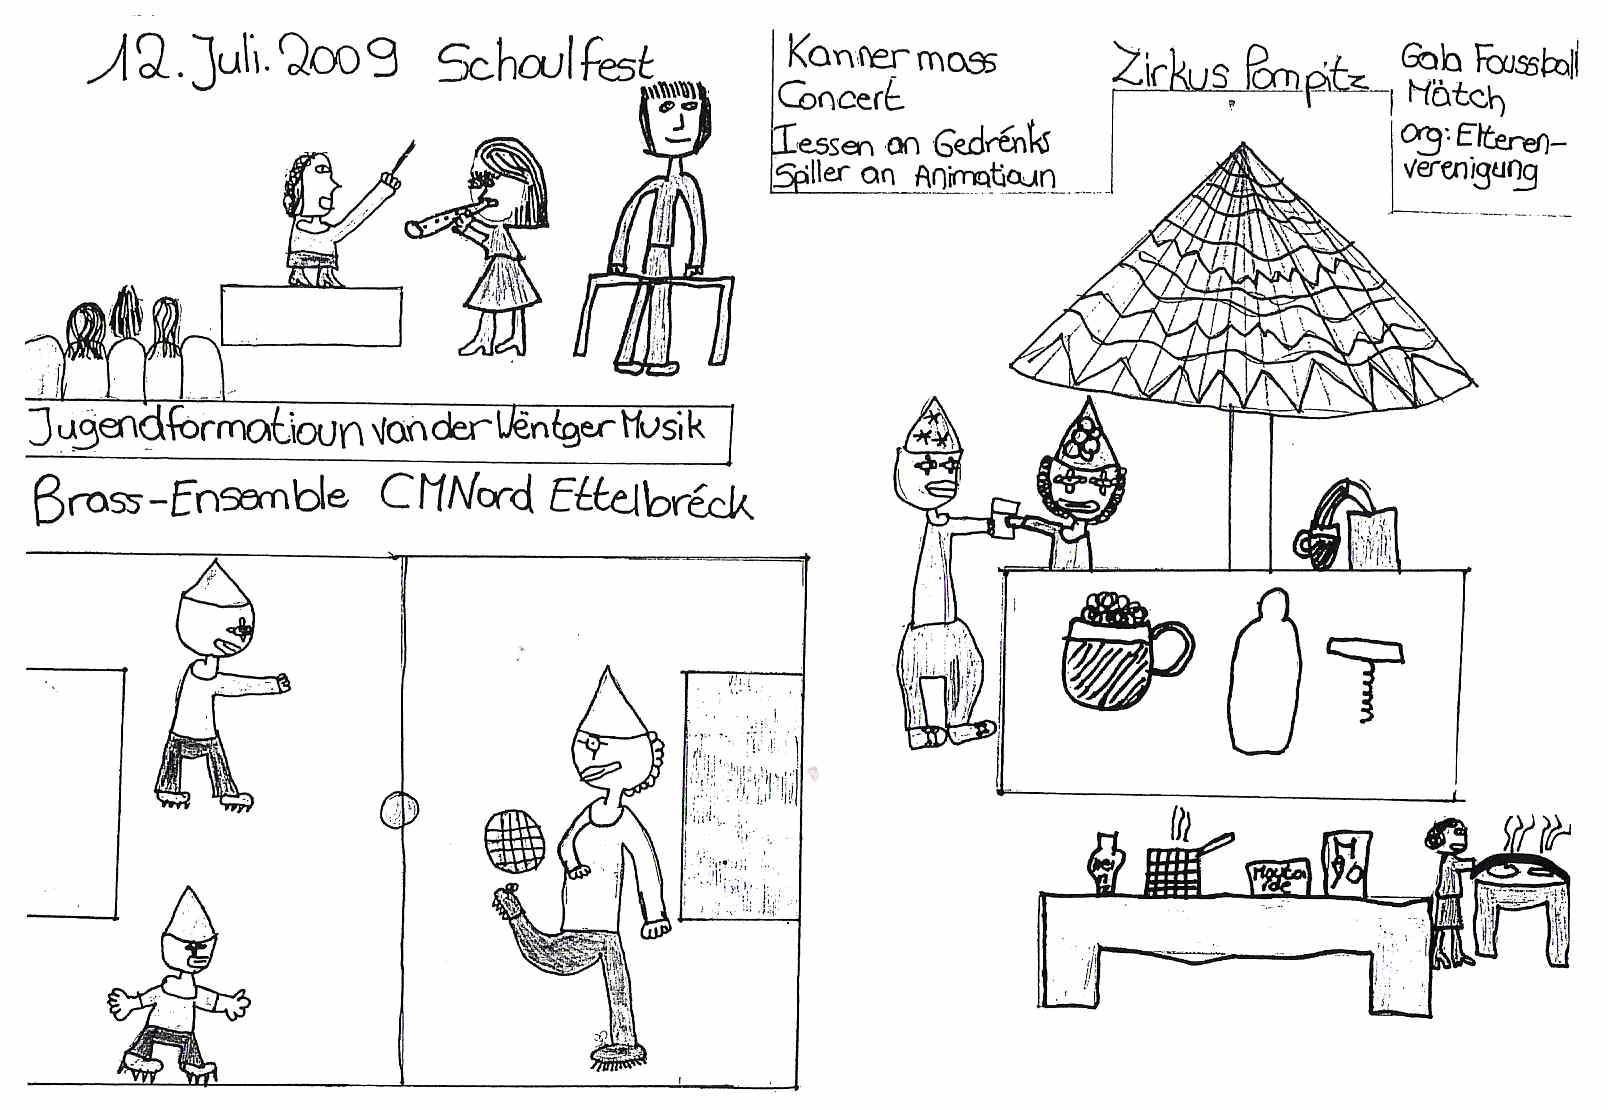 12. Juli. 2009 Schoulfest
Kannermass
Concert
Iessen an Gedrénks
Spiller an Animatioun
Zirkus Pompitz
Gala Foussball
Mätch
org: Elteren-
verenigung
Jugendformatioun van der Wëntger Musik
Brass-Ensemble CMNord Ettelbréck
Mouta
rde